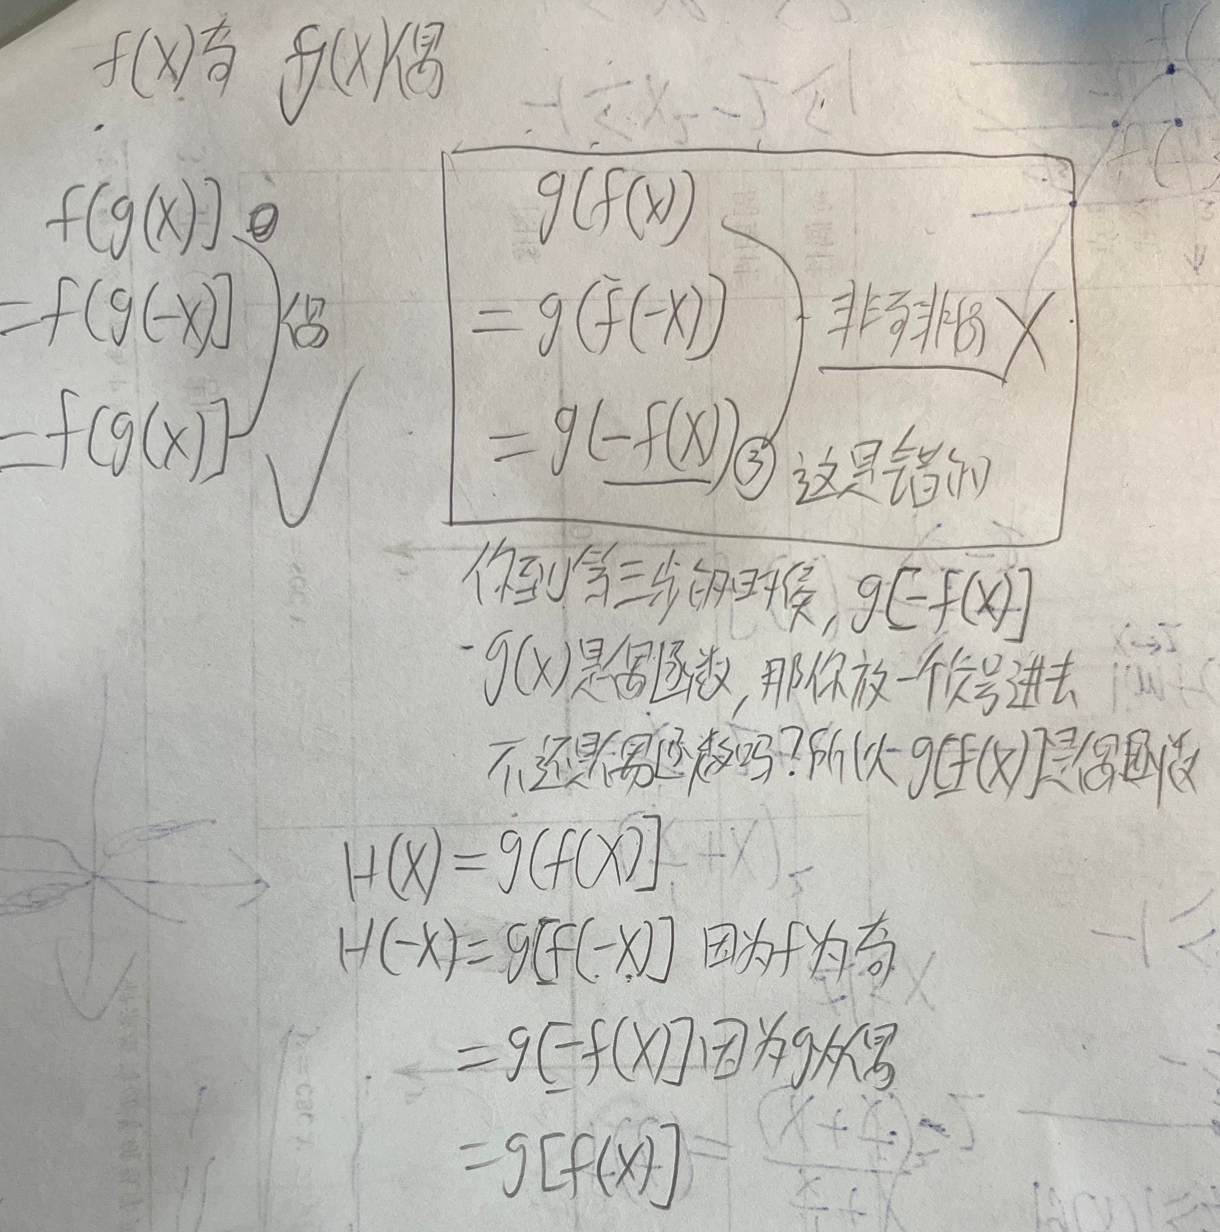 f(x)奇 g(x)偶
f(g(x)]
=f(g(-x)] 偶
=f(g(x)]
g(f(x))
=g(f(-x)) 非奇非偶 X
=g(-f(x)) ③ 这是错的
你到第三步的时候, g[-f(x)]
g(x)是偶函数, 那你放一个负号进去
不还是偶函数吗? 所以 g[f(x)]是偶函数
H(x)=g(f(x)]
H(-x)=g[f(-x)] 因为f为奇
=g[-f(x)] 因为g为偶
=g[f(x)]